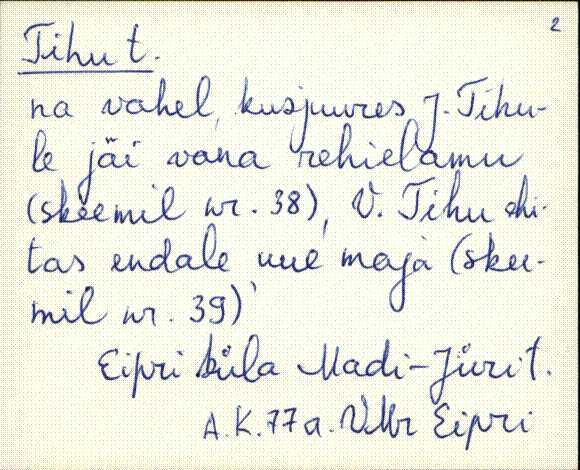 2
Tihu t.
na vahel, kusjuures J. Tihu-
le jäi vana rehielamu
(skeemil nr. 38), V. Tihu ehi-
tas endale uue maja (skee-
mil nr. 39)
Eipri küla Madi-Jüri t.
A.K. 77 a. VMr Eipri